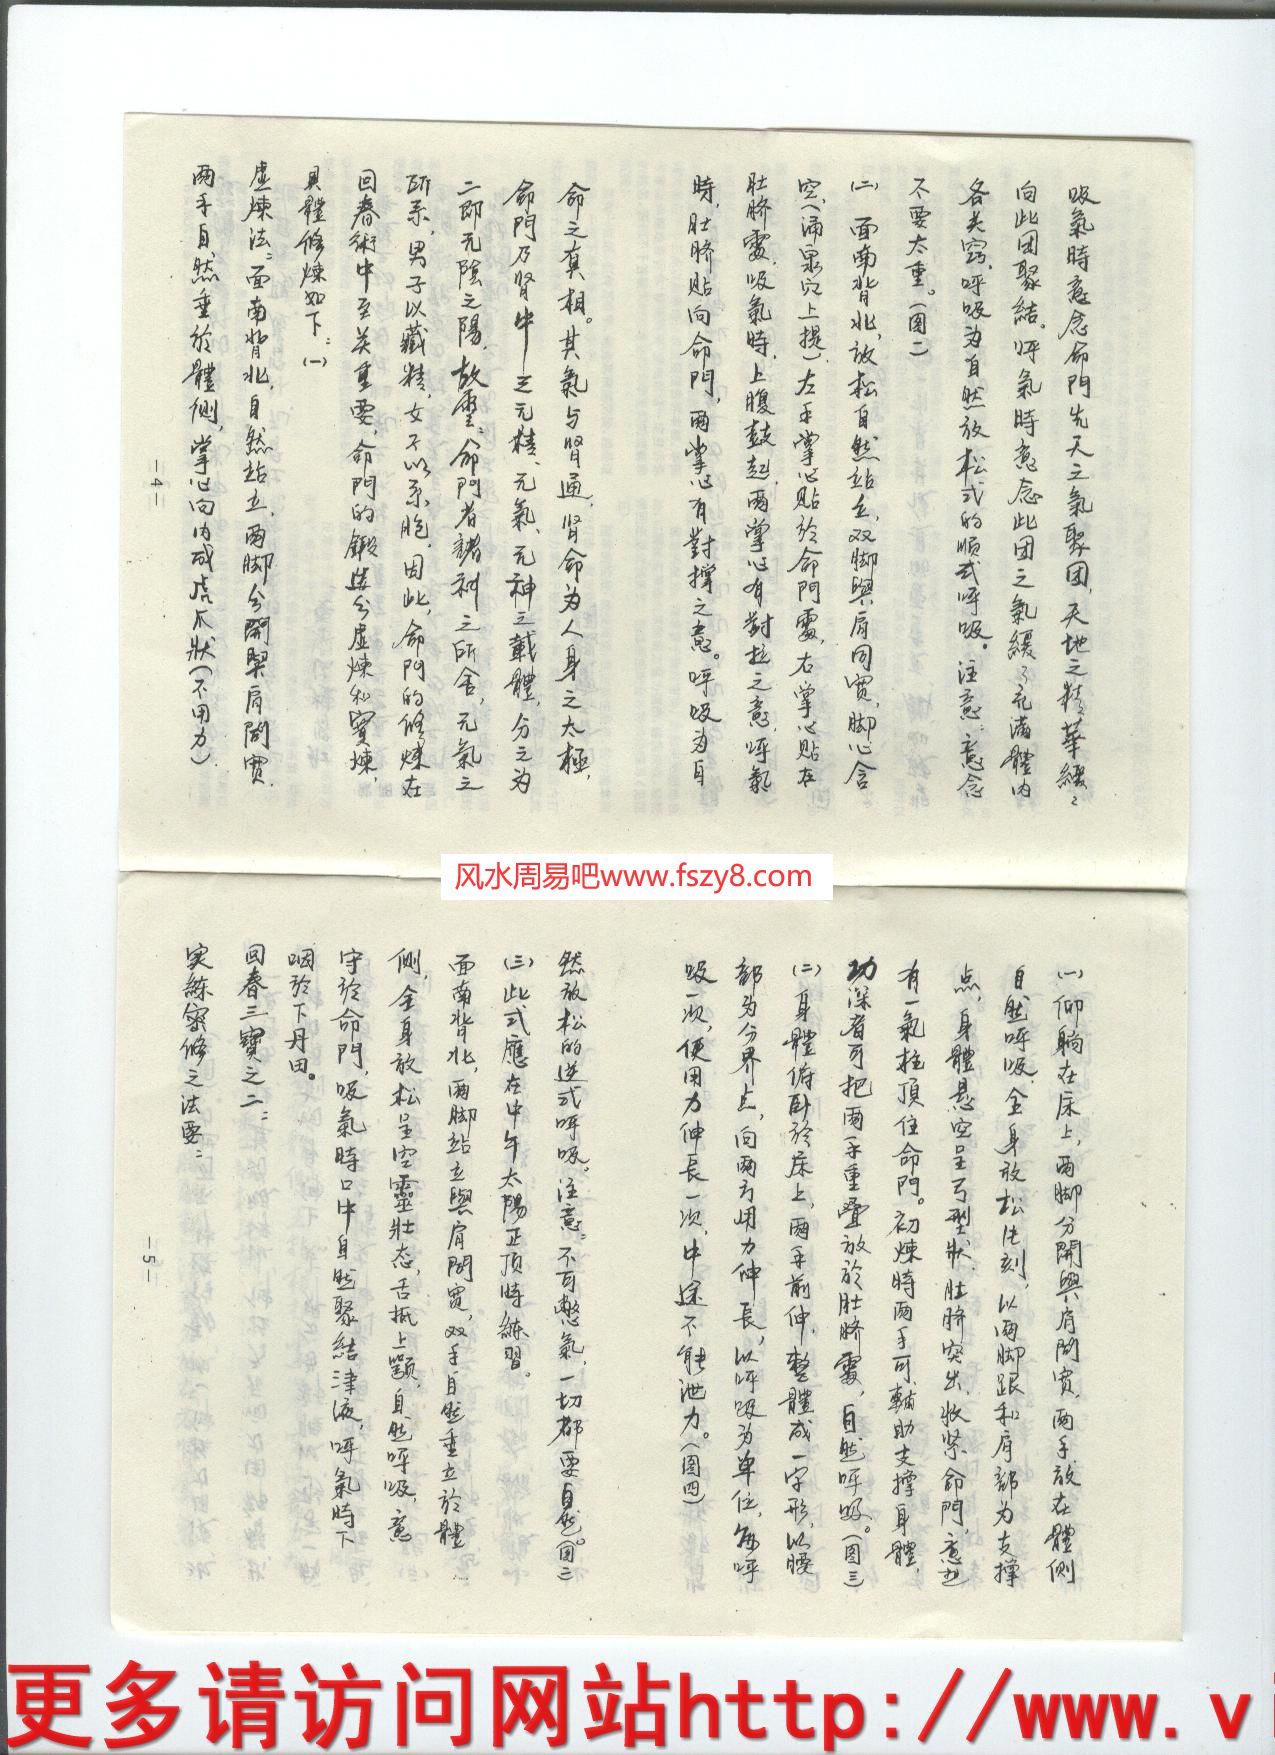 吸氣時意念命門先天之氣聚团，天地之精華緩々
向此团聚結。呼氣時意念此团之氣緩々充滿體内
各关窍，呼吸为自然放松式的顺式呼吸。注意：意念
不要太重。(图二
(二) 面南背北，放松自然站立，双脚與肩同宽，脚心含
空(涌泉穴上提)，左手掌心貼於命門處，右掌心贴在
肚脐處，吸氣時，上腹鼓起，兩掌心有對拉之意，呼氣
時，肚脐貼向命門，兩掌心有對撐之意。呼吸为自
命之真相。其氣与腎通，腎命为人身之太極，
命門乃腎中之元精、元氣、元神之載體，分之为
二即元陰元陽，故靈：命門者諸神之所舍，元氣之
所系，男子以藏精，女子以系胞，因此，命門的修煉在
回春術中至关重要，命門的鍛造分虚煉和實煉，
具體修煉如下：(一)
虚煉法：面南背北，自然站立，兩脚分開與肩同宽，
兩手自然垂於體側，掌心向内成虎爪狀(不用力)
—4—
风水周易吧www.fszy8.com
(一) 仰躺在床上，兩脚分開與肩同宽，兩手放在體側
自然呼吸，全身放松片刻，以兩脚跟和肩部为支撐
点，身體悬空呈弓型狀，肚脐突出，收紧命門，意想
有一氣柱頂住命門。初煉時兩手可輔助支撐身體，
功深者可把兩手重疊放於肚脐處，自然呼吸。(图三
(二) 身體俯卧於床上，兩手前伸，整體成一字形，以腰
部为分界点，向兩方用力伸長，以呼吸为单位，每呼
吸一次，便用力伸長一次，中途不能泄力。(图四)
然放松的逆式呼吸。注意：不可憋氣，一切都要自然。(图三
(三) 此式應在中午太陽正頂時練習。
面南背北，兩脚站立與肩同宽，双手自然垂立於體
側，全身放松呈空靈壯态，舌抵上颚，自然呼吸，意
守於命門，吸氣時口中自然聚結津液，呼氣時下
咽於下丹田。
回春三寶之二：
实練密修之法要：
—5—
更多请访问网站http://www.v